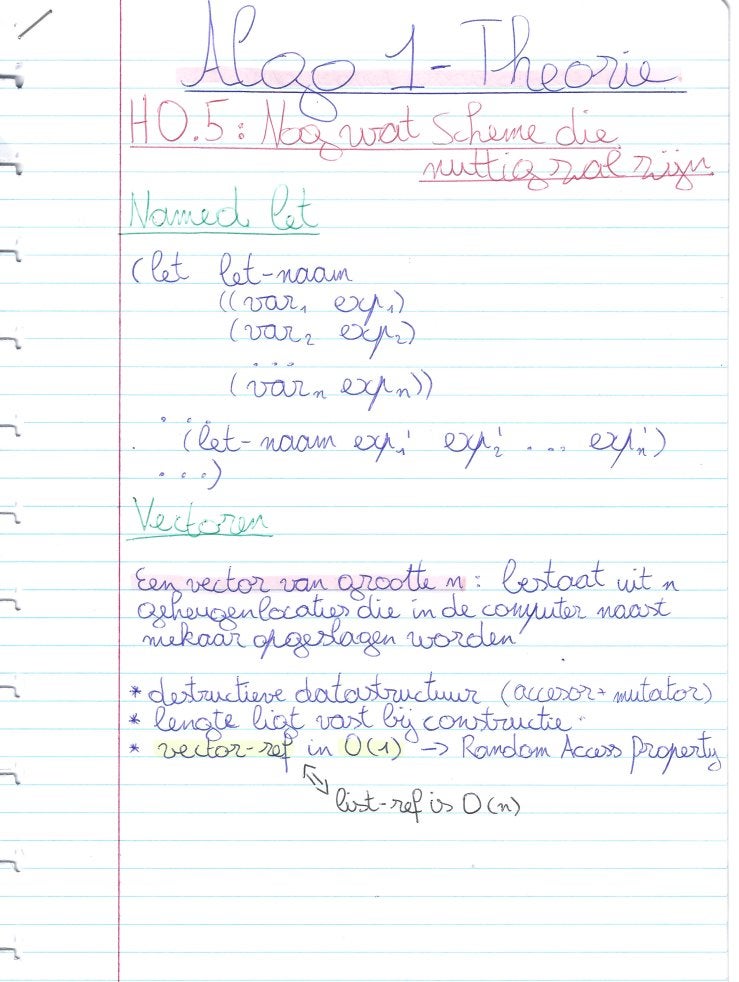 Algo 1 - Theorie
H0.5: Nog wat Scheme die
nuttig zal zijn
Named let
(let let-naam
((var₁ exp₁)
(var₂ exp₂)
...
(varₙ expₙ))
...
(let-naam exp₁' exp₂' ... expₙ')
...)
Vectoren
Een vector van grootte n: bestaat uit n
geheugenlocaties die in de computer naast
mekaar opgeslagen worden
* destructieve datastructuur (accesor + mutator)
* lengte ligt vast bij constructie.
* vector-ref in O(1) -> Random Access Property
list-ref is O(n)